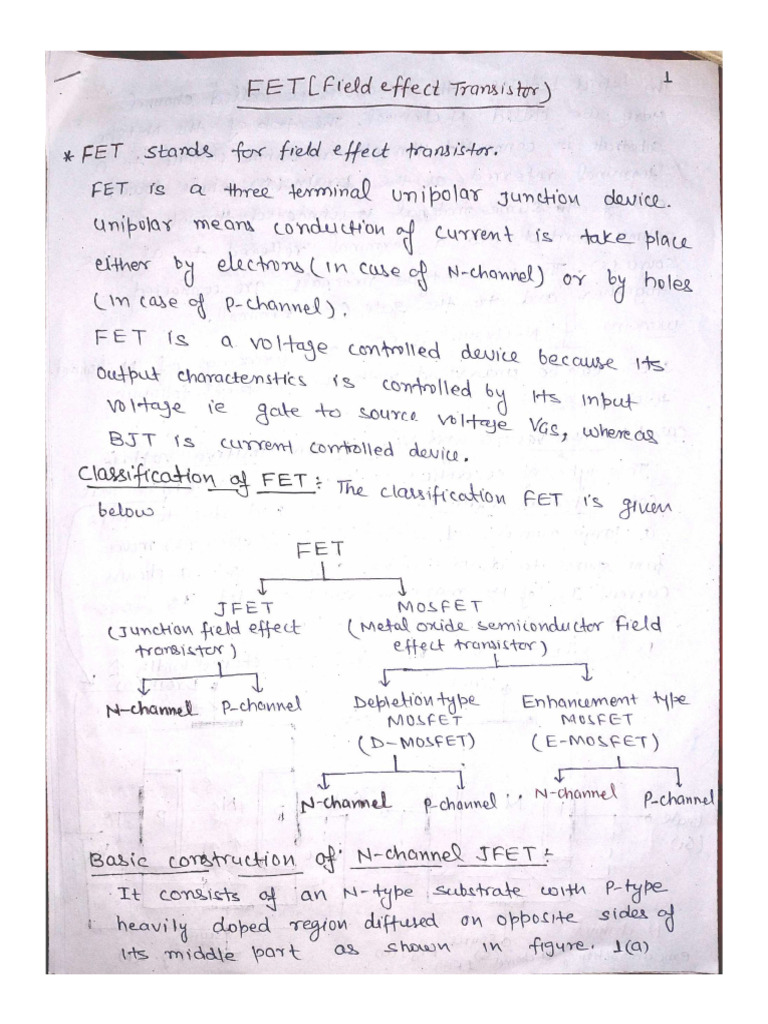 1
FET[Field effect Transistor)
* FET stands for field effect transistor.
FET is a three terminal unipolar junction device.
Unipolar means conduction of current is take place
either by electrons (in case of N-channel) or by holes
(in case of P-channel).
FET is a voltage controlled device because its
output characteristics is controlled by its input
voltage ie gate to source voltage VGS, whereas
BJT is current controlled device.
Classification of FET: The classification FET is given
below
FET
JFET MOSFET
(Junction field effect (Metal oxide semiconductor field
transistor) effect transistor)
N-channel P-channel Depletion type Enhancement type
MOSFET MOSFET
(D-MOSFET) (E-MOSFET)
N-channel P-channel N-channel P-channel
Basic construction of N-channel JFET:
It consists of an N-type substrate with P-type
heavily doped region diffused on opposite sides of
its middle part as shown in figure. 1(a)